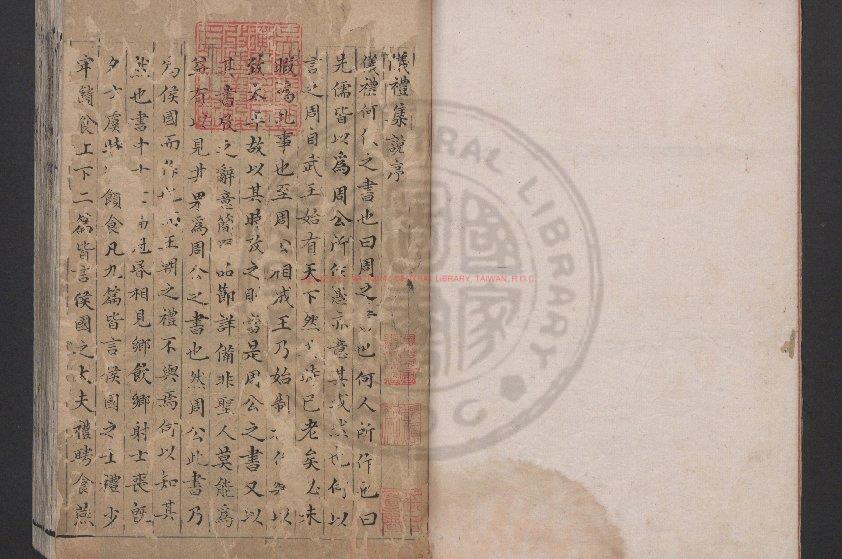 儀禮集說序
儀禮何代之書也曰周之書也何人所作也曰
先儒皆以為周公所作愚亦意其或然也何以
言之周自武王始有天下然武王已老矣必未
暇為此事也至周公相成王乃始制禮作樂以
致太平故以其時攷之則當是周公之書又以
其書攷之辭意簡嚴品節詳備非聖人莫能為
益有以見其果為周公之書也然周公此書乃
為侯國而作也而王朝之禮不與焉何以知其
然也書中十七篇冠昏相見鄉飲鄉射士喪既
夕士虞特牲饋食凡九篇皆言侯國之士禮少
牢饋食上下二篇皆言侯國之大夫禮聘食燕
CENTRAL LIBRARY, TAIWAN, R.O.C